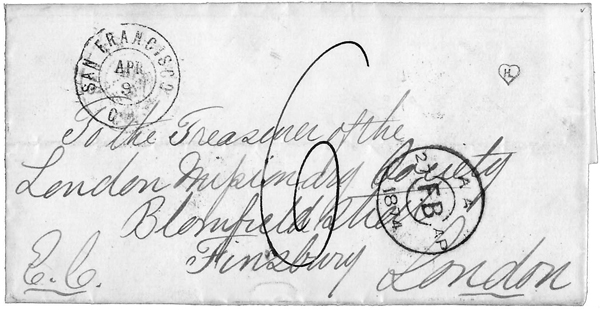 SAN FRANCISCO
APR
9
6
H
To the Treasurer of the
London Missionary Society
Blomfield Str
Finsbury
E.C. London
A A
27 FB AP
1874